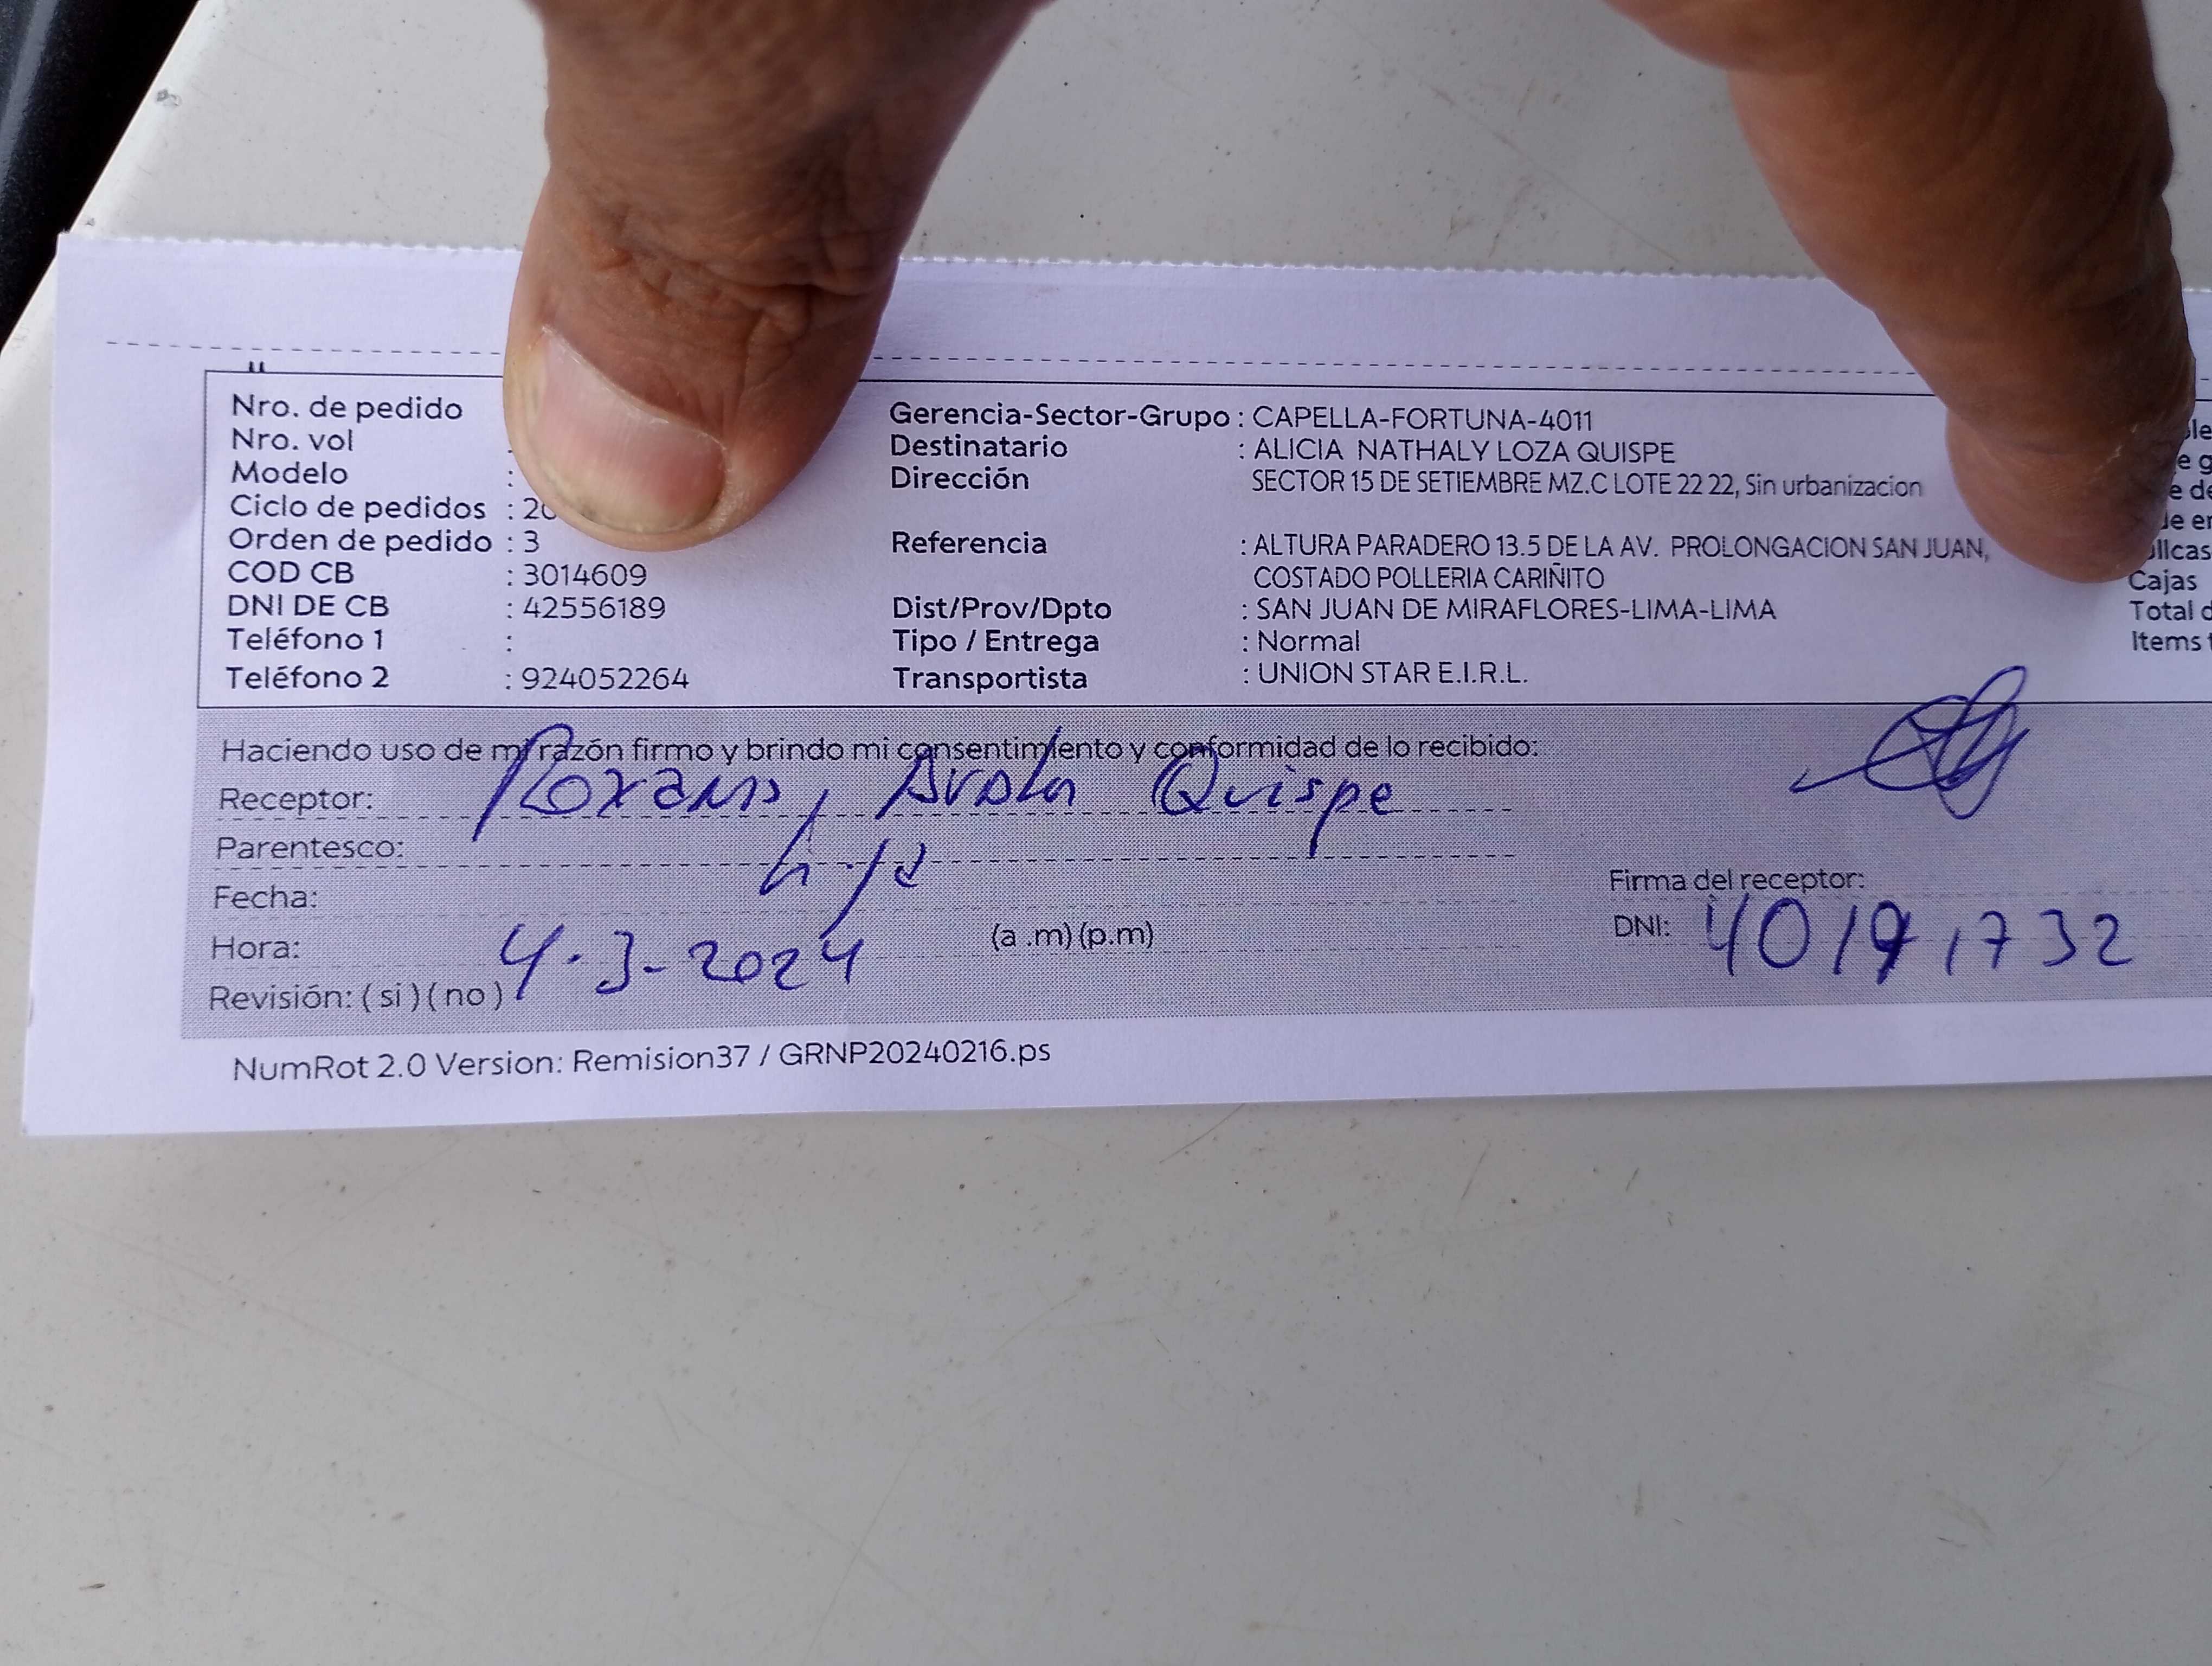 Nro. de pedido
Nro. vol
Modelo :
Ciclo de pedidos : 20
Orden de pedido : 3
COD CB : 3014609
DNI DE CB : 42556189
Teléfono 1 :
Teléfono 2 : 924052264
Gerencia-Sector-Grupo : CAPELLA-FORTUNA-4011
Destinatario : ALICIA NATHALY LOZA QUISPE
Dirección SECTOR 15 DE SETIEMBRE MZ.C LOTE 22 22, Sin urbanizacion
Referencia : ALTURA PARADERO 13.5 DE LA AV. PROLONGACION SAN JUAN,
COSTADO POLLERIA CARIÑITO
Dist/Prov/Dpto : SAN JUAN DE MIRAFLORES-LIMA-LIMA
Tipo / Entrega : Normal
Transportista : UNION STAR E.I.R.L.
Cajas
Total d
Items t
Haciendo uso de mi razón firmo y brindo mi consentimiento y conformidad de lo recibido:
Receptor: Roxana Quispe
Parentesco: hija
Fecha:
Hora: 4-3-2024 (a .m) (p.m)
Revisión: ( si ) ( no )
Firma del receptor:
DNI: 40191732
NumRot 2.0 Version: Remision37 / GRNP20240216.ps